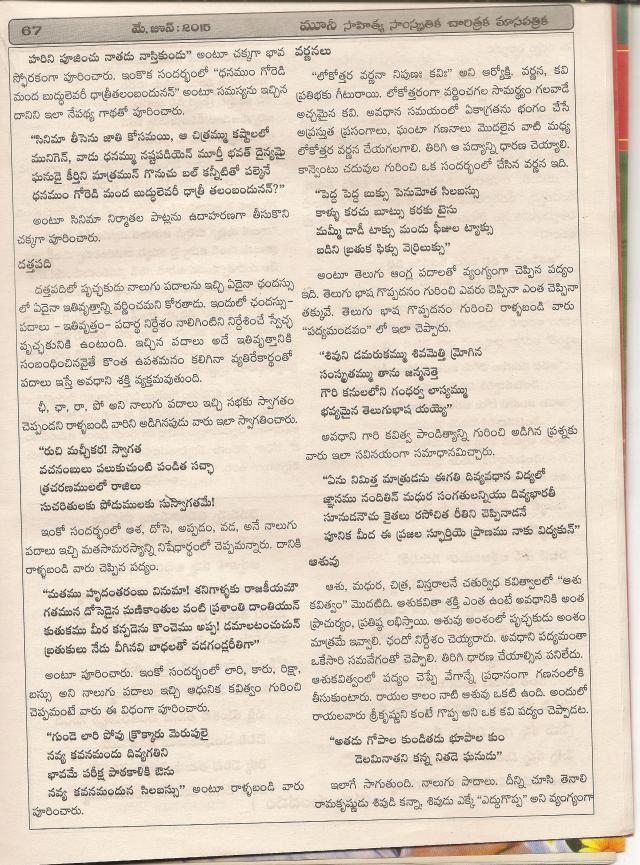 67
మే, జూన్ : 2015
మూసీ సాహిత్య సాంస్కృతిక చారిత్రక మాసపత్రిక
హరిని పూజించు నాతడు నాస్తికుండు" అంటూ చక్కగా భావ
స్ఫోరకంగా పూరించారు. ఇంకొక సందర్భంలో "ధనముం గోరెడి
మంద బుద్ధులెవరీ ధాత్రీతలంబందునన్" అంటూ సమస్యను ఇచ్చిన
దానిని ఇలా నేపథ్య గాథతో పూరించారు.
"సినిమా తీసెను జాతి కోసమయి, ఆ చిత్రమ్ము కష్టాలలో
మునిగెన్, వాడు ధనమ్ము నష్టపడియెన్ మూర్తీ భవత్ దైన్యమై
ఘనుడై కీర్తిని మాత్రమున్ గొనుచు బల్ కన్నీటితో పల్కెనే
ధనముం గోరెడి మంద బుద్ధులెవరీ ధాత్రీ తలంబందునన్?"
అంటూ సినిమా నిర్మాతల పాట్లను ఉదాహరణగా తీసుకొని
చక్కగా పూరించారు.
దత్తపది
దత్తపదిలో పృచ్ఛకుడు నాలుగు పదాలను ఇచ్చి ఏదైనా ఛందస్సు
లో ఏదైనా ఇతివృత్తాన్ని వర్ణించమని కోరతాడు. ఇందులో ఛందస్సు-
పదాలు - ఇతివృత్తం- పదార్థ నిర్దేశం నాలిగింటిని నిర్దేశించే స్వేచ్ఛ
పృచ్ఛకునికి ఉంటుంది. ఇచ్చిన పదాలు అదే ఇతివృత్తానికి
సంబంధించినవైతే కొంత ఉపశమనం కలిగినా వ్యతిరేకార్థంతో
పదాలు ఇస్తే అవధాని శక్తి వ్యక్తమవుతుంది.
ఛీ, ఛా, రా, పో అని నాలుగు పదాలు ఇచ్చి సభకు స్వాగతం
చెప్పండని రాళ్ళబండి వారిని అడిగినపుడు వారు ఇలా స్వాగతించారు.
"రుచి మచ్ఛీకర! స్వాగత
వచనంబులు పలుకుచుంటి పండిత సచ్ఛా
త్రచరణములలో రాజిలు
సుచరితులకు పోడుములకు సుస్వాగతమే!
ఇంకో సందర్భంలో ఆశ, దోసె, అప్పడం, వడ, అనే నాలుగు
పదాలు ఇచ్చి మతసామరస్యాన్ని నిషేధార్థంలో చెప్పమన్నారు. దానికి
రాళ్ళబండి వారు చెప్పిన పద్యం.
"మతము హృదంతరంబు వినుమా! శనిగాళ్ళకు రాజకీయమౌ
గతమున దోసెడైన మణికాంతుల వంటి ప్రశాంతి దాంతియున్
కుతుకము మీర కన్పడెను కొంచెము అప్పు! డమాలటంచుచున్
బ్రతుకులు నేడు వీగినవి బాధలతో వడగండ్లరీతిగా"
అంటూ పూరించారు. ఇంకో సందర్భంలో లారి, కారు, రిక్షా,
బస్సు అని నాలుగు పదాలు ఇచ్చి ఆధునిక కవిత్వం గురించి
చెప్పమంటే వారు ఈ విధంగా పూరించారు.
"గుండె లారి పోవు క్రొక్కారు మెరుపులై
నవ్య కవనమందు దివ్యగతిని
భావమే పరీక్ష పాఠకాలికి ఔను
నవ్య కవనమందున సిలబస్సు" అంటూ రాళ్లబండి వారు
పూరించారు.
వర్ణనలు
"లోకోత్తర వర్ణనా నిపుణః కవిః" అని ఆర్యోక్తి. వర్ణన, కవి
ప్రతిభకు గీటురాయి. లోకోత్తరంగా వర్ణించగల సామర్థ్యం గలవాడే
అచ్చమైన కవి. అవధాన సమయంలో ఏకాగ్రతను భంగం చేసే
అప్రస్తుత ప్రసంగాలు, ఘంటా గణనాలు మొదలైన వాటి మధ్య
లోకోత్తర వర్ణన చేయగలగాలి. తిరిగి ఆ పద్యాన్ని ధారణ చెయ్యాలి.
కాన్వెంటు చదువుల గురించి ఒక సందర్భంలో చేసిన వర్ణన ఇది.
"పెద్ద పెద్ద బుక్సు పెనుమోత సిలబస్సు
కాళ్ళు కరచు బూట్సు కరకు టైసు
మమ్మీ డాడీ టాక్సు మందు ఫీజుల ట్యాక్సు
బడిని బ్రతుక ఫిక్సు వెర్రిలుక్సు"
అంటూ తెలుగు ఆంగ్ల పదాలతో వ్యంగ్యంగా చెప్పిన పద్యం
ఇది. తెలుగు భాష గొప్పదనం గురించి ఎవరు చెప్పినా ఎంత చెప్పినా
తక్కువే. తెలుగు భాష గొప్పదనం గురించి రాళ్ళబండి వారు
"పద్యమండపం" లో ఇలా చెప్పారు.
"శివుని డమరుకమ్ము శివమెత్తి మ్రోగిన
సంస్కృతమ్ము తాను జన్మనెత్తె
గౌరి కనులలోని గంధర్వ లాస్యమ్ము
భవ్యమైన తెలుగుభాష యయ్యె"
అవధాని గారి కవిత్వ పాండిత్యాన్ని గురించి అడిగిన ప్రశ్నకు
వారు ఇలా సవినయంగా సమాధానమిచ్చారు.
"ఏను నిమిత్త మాత్రుడను ఈగతి దివ్యవధాన విద్యలో
జ్ఞానము నందితిన్ మధుర సంగతులన్నియు దివ్యభారతీ
సూనుడనౌచు కైతలు రసోచిత రీతిని చెప్పినాడనే
పూనిక మీద ఈ ప్రజల స్ఫూర్తియె ప్రాణము నాకు విద్యకున్"
ఆశువు
ఆశు, మధుర, చిత్ర, విస్తరాలనే చతుర్విధ కవిత్వాలలో "ఆశు
కవిత్వం" మొదటిది. ఆశుకవితా శక్తి ఎంత ఉంటే అవధానికి అంత
ప్రాచుర్యం, ప్రతిష్ఠ లభిస్తాయి. ఆశువు అంశంలో పృచ్ఛకుడు అంశం
మాత్రమే ఇవ్వాలి. ఛందో నిర్దేశం చెయ్యరాదు. అవధాని పద్యమంతా
ఒకేసారి సమవేగంతో చెప్పాలి. తిరిగి ధారణ చేయాల్సిన పనిలేదు.
ఆశుకవిత్వంలో పద్యం చెప్పే వేగాన్నే ప్రధానంగా గణనలోకి
తీసుకుంటారు. రాయల కాలం నాటి ఆశువు ఒకటి ఉంది. అందులో
రాయలవారు శ్రీకృష్ణుని కంటే గొప్ప అని ఒక కవి పద్యం చెప్పాడట.
"అతడు గోపాల కుండితడు భూపాల కుం
డెలమినాతని కన్న నితడె ఘనుడు"
ఇలాగే సాగుతుంది. నాలుగు పాదాలు. దీన్ని చూసి తెనాలి
రామకృష్ణుడు శివుడి కన్నా, శివుడు ఎక్కే "ఎద్దుగొప్ప" అని వ్యంగ్యంగా